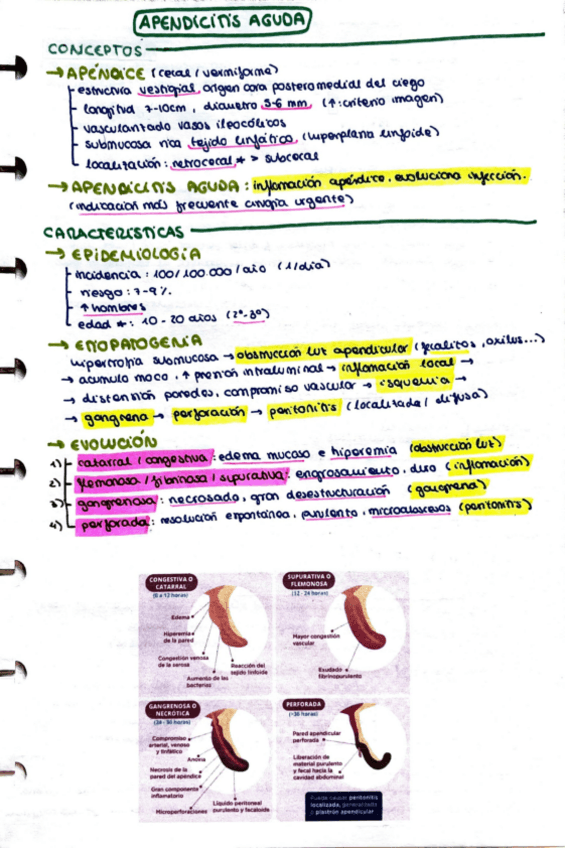 APENDICITIS AGUDA
CONCEPTOS
→ APÉNDICE (cecal / vermiforme)
estructura vestigial, origen cara posteromedial del ciego
longitud 7-10cm, diámetro 5-6 mm (↑: criterio imagen)
vascularizado vasos ileocólicos
submucosa rica tejido linfático (hiperplasia linfoide)
localización: retrocecal * > subcecal
→ APENDICITIS AGUDA: inflamación apéndice, evoluciona infección.
(indicación más frecuente cirugía urgente)
CARACTERÍSTICAS
→ EPIDEMIOLOGÍA
incidencia: 100/100.000/año (1/día)
riesgo: 7-9%
↑ hombres
edad *: 10-20 años (2ª-3ª)
→ ETIOPATOGENIA
hipertrofia submucosa → obstrucción luz apendicular (fecalitos, oxiuros...)
→ acumulo moco, ↑ presión intraluminal → inflamación local →
→ distensión paredes, compromiso vascular → isquemia →
→ gangrena → perforación → peritonitis (localizada / difusa)
→ EVOLUCIÓN
1) catarral / congestiva: edema mucoso e hiperemia (obstrucción luz)
2) flemonosa / flemosa / supurativa: engrosamiento, duro (inflamación)
3) gangrenosa: necrosado, gran desestructuración (gangrena)
4) perforada: resolución espontánea, purulento, microabscesos (peritonitis)
CONGESTIVA O CATARRAL
(0 a 12 horas)
Edema
Hiperemia de la pared
Congestión venosa de la serosa
Aumento de las bacterias
Reacción del tejido linfoide
SUPURATIVA O FLEMONOSA
(12 - 24 horas)
Mayor congestión vascular
Exudado fibrinopurulento
GANGRENOSA O NECRÓTICA
(24 - 36 horas)
Compromiso arterial, venoso y linfático
Anoxia
Necrosis de la pared del apéndice
Gran componente inflamatorio
Microperforaciones
Líquido peritoneal purulento y fecaloide
PERFORADA
(>36 horas)
Pared apendicular perforada
Liberación de material purulento y fecal hacia la cavidad abdominal
Puede causar peritonitis localizada, generalizada o plastrón apendicular